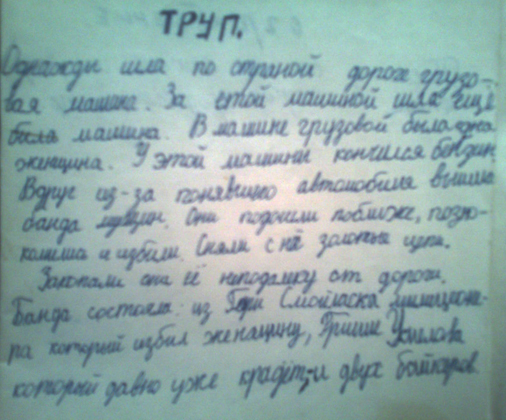 ТРУП.
Однажды шла по страной дороге грузо-
вая машина. За етой машиной шла ещё
была машина. В машине грузовой была одна
женщина. У этой машины кончился бензин.
Вдруг из-за понявшего автомобиля вышла
банда мужчин. Они подошли поближе, позна-
комиша и избили. Сняли с неё золотые цепи.
Закопали они её неподалку от дороги.
Банда состояла: из Гери милиционе-
ра который избил женащину, Гриши
который давно уже крадёт, и двух байкаров.